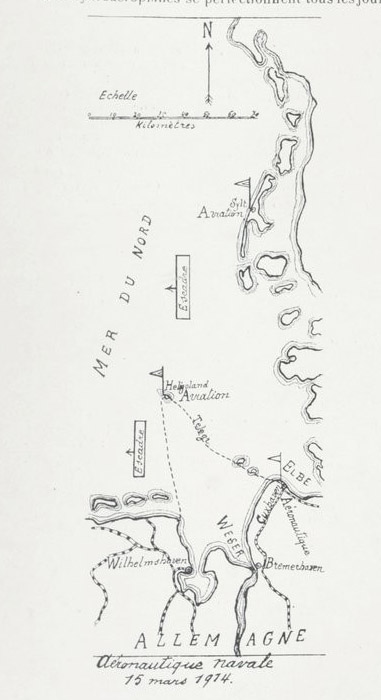 se perfectionnent tous les jou
N
Echelle
Kilomètres
Sylt
Aviation
MER DU NORD
Escadre
Helgoland
Aviation
Telegr
Escadre
ELBE
Cuxhaven
Aéronautique
WESER
Wilhelmshaven
Bremerhaven
ALLEMAGNE
Aéronautique navale
15 mars 1914.